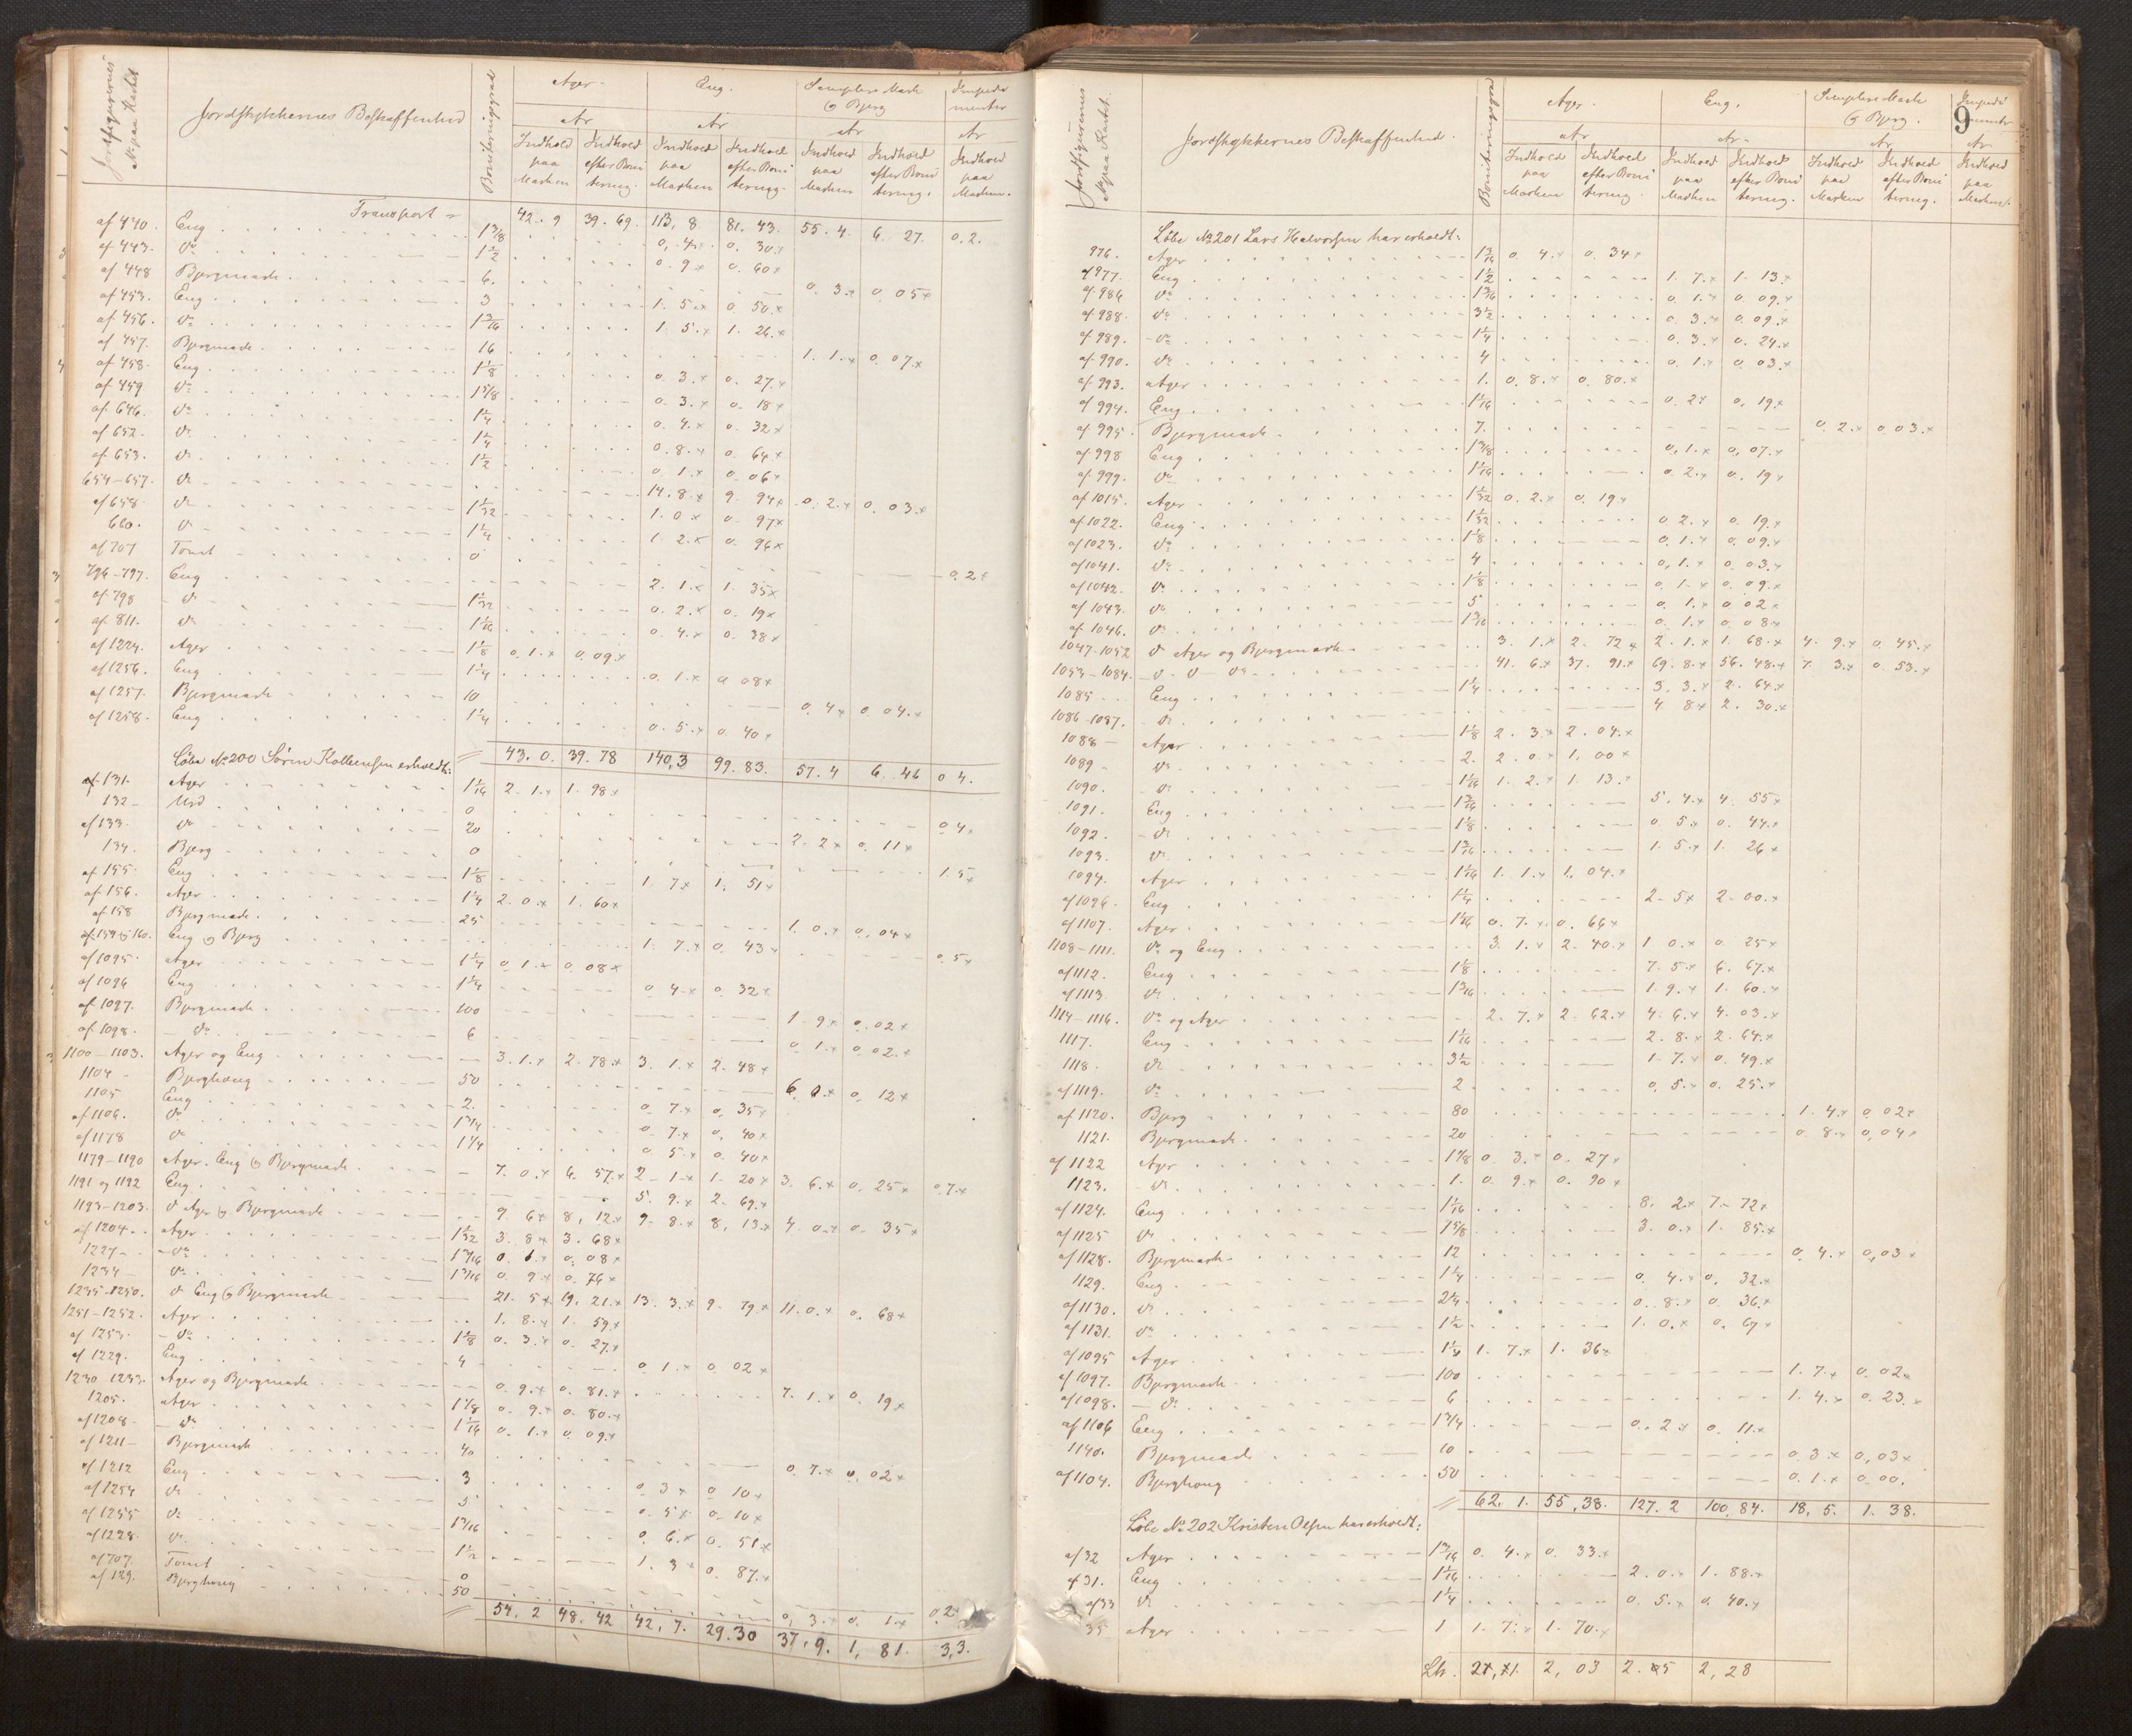 Jordfigurernes No paa Kartet
Jordstykkernes Beskaffenhed
Boniteringsgrad
Ager. Eng. Simplere Mark og Bjerg Impedimenter
Ar Ar Ar Ar
Indhold paa Marken Indhold efter Bonitering. Indhold paa Marken Indhold efter Bonitering. Indhold paa Marken Indhold efter Bonitering. Indhold paa Marken.
Transport 42. 9 39. 69. 113, 8. 81. 43. 55. 4. 6. 27. 0,2.
af 440. Eng 1 3/8 0, 4 0. 30
af 443. do 1 1/2 0. 9 0. 60
af 448 Bjergmark 6. 0. 3 0 05
af 453. Eng 3 1. 5 0 50
af 456. do 1 3/16 1. 5 1. 26
af 457. Bjergmark 16 1. 1 0 07
af 458. Eng 1 1/8 0. 3 0. 27
af 459 do 1 5/8 0. 3 0. 18
af 646. do 1 1/4 0. 4 0. 32
af 652. do 1 1/4 0. 8 0 64
af 653. do 1 1/2 0. 1 0 06
654-657. do 14. 8 9. 94 0. 2 0. 03
af 658 do 1 1/32 1. 0 0. 97
660. do 1 1/4 1. 2 0. 96
af 707 Tomt 0 0. 2
796-797. Eng 2. 1 1. 35
af 798 do 1 1/32 0. 2 0. 19
af 811. do 1 1/16 0. 4 0. 38
af 1224. Ager 1 1/8 0. 1 0. 09
af 1256. Eng 1 1/4 0. 1 0 08
af 1257. Bjergmark 10 0. 4 0 04
af 1258. Eng 1 1/4 0. 5 0 40
43. 0. 39. 78 140,3 99. 83. 57. 4 6. 46 0 4.
Løbe No 200 Søren Kolbensen erholdt:
af 131. Ager 1 1/16 2. 1 1. 98
132 Urd 0 0 4
af 133 do 20 2. 2 0. 11
134. Bjerg 0 1. 5
af 155. Eng 1 1/8 1. 7 1. 51
af 156. Ager 1 1/4 2. 0 1. 60
af 158 Bjergmark. 25 1. 0 0, 04
af 159 og 160. Eng og Bjerg 1. 7 0. 43 0. 5
af 1095. Ager 1 1/4 0. 1 0. 08
af 1096 Eng 1 1/4 0 4 0. 32
af 1097. Bjergmark 100 1. 9 0. 02
af 1098. do 6 0 1 0. 02
1100-1103. Ager og Eng 3. 1 2. 78 3. 1 2. 48
1104 Bjerghong 50 6 0 0, 12
1105 Eng 2. 0. 7 0, 35
af 1106. do 1 3/4 0. 7 0, 40
af 1178 do 1 1/4 0 5 0. 40
1179-1190 Ager. Eng og Bjergmark 7. 0 6. 57 2 1 1. 20 3. 6 0. 25 0 7
1191 og 1192 Eng 5. 9 2. 69
1193-1203. do Ager og Bjergmark 9. 6 8, 12 9. 8 8, 13 4. 0 0. 35
af 1204 Ager 1 1/32 3. 8 3. 68
1227 do 1 3/16 0. 1 0. 08
1234 do 1 3/16 0. 9 0. 76
1235-1250. do Eng og Bjergmark 21. 5 19, 21 13. 3 9. 79 11. 0 0. 68
1251-1252. Ager 1. 8 1. 59
af 1253. do 1 1/8 0. 3 0. 27
af 1229. Eng 4 0 1 0 02
1230 1233. Ager og Bjergmark 0. 9 0. 81 7. 1 0. 19
1205. Ager 1 1/8 0. 9 0. 80
af 1208 do 1 1/16 0. 1 0. 09
af 1211 Bjergmark 40 0. 7 0, 02
af 1212 Eng 3 0. 3 0 10
af 1254 do 5 0. 5 0 10
af 1255 do 1 3/16 0. 6 0. 51
af 1228 do 1 1/2 1. 3 0. 87
af 707. Tomt 0 0. 2
af 129. Bjerghong 50 0, 3 0. 1
54. 2 48. 42 42, 7. 29. 30 37, 9. 1, 81. 3,3.
9
Jordfigurernes No paa Kartet.
Jordstykkernes Beskaffenhed.
Boniteringsgrad
Ager. Eng. Simplere Mark og Bjerg.
Ar Ar. Ar Ar
Indhold paa Marken Indhold efter Bonitering. Indhold paa Marken Indhold efter Bonitering. Indhold paa Marken Indhold efter Bonitering. Indhold paa Marken.
Løbe No 201 Lars Halvorsen har erholdt:
976. Ager 1 3/16 0 4 0. 34
af 977. Eng 1 1/2 1. 7 1. 13
af 986 do 1 3/16 0. 1 0. 09
af 988. do 3 1/2 0. 3 0. 09
af 989. do 1 1/4 0. 3 0. 24
af 990. do 4 0. 1 0. 03
af 993. Ager 1. 0. 8 0. 80
af 994. Eng 1 1/16 0. 2 0, 19
af 995. Bjergmark 7. 0. 2 0. 03
af 998 Eng 1 3/8 0, 1 0, 07
af 999. do 1 1/16 0. 2 0, 19
af 1015. Ager 1 1/32 0. 2 0. 19
af 1022. Eng 1 1/32 0 2 0. 19
af 1023. do 1 1/8 0. 1 0. 09
af 1041. do 4 0, 1 0. 03
af 1042. do 1 1/8 0. 1 0. 09
af 1043. do 5 0. 1 0 02
af 1046. do 1 3/16 0. 1 0. 08
1047-1052 do Ager og Bjergmark 3. 1 2. 72 2. 1 1. 68 4. 9 0. 45
1053-1084. do do do 41. 6 37. 91 69. 8 56. 48 7. 3 0. 53
1085 Eng 1 1/4 3. 3 2. 64
1086-1087. do 4. 8 2. 30
1088 Ager 1 1/8 2. 3 2. 04
1089 do 2. 2. 0 1. 00
1090. do 1 1/16 1. 2 1. 13
1091. Eng 1 3/16 5, 4 4. 55
1092. do 1 1/8 0. 5 0. 44
1093. do 1 3/16 1. 5 1. 26
1094. Ager 1 1/16 1. 1 1. 04
af 1096. Eng 1 1/4 2. 5 2. 00
af 1107. Ager 1 1/16 0. 7 0. 66
1108-1111. do og Eng 3. 1 2. 40 1. 0 0. 25
af 1112. Eng 1 1/8 7. 5 6. 67
af 1113. do 1 3/16 1. 9 1. 60
1114-1116. do og Ager 2. 7 2. 62 4. 6 4. 03
1117. Eng 1 1/16 2. 8 2. 64
1118. do 3 1/2 1. 7 0. 49
af 1119. do 2 0, 5 0. 25
af 1120. Bjerg 80 1. 4 0. 02
1121. Bjergmark 20 0. 8 0, 04
af 1122 Ager 1 1/8 0. 3 0. 27
1123. do 1. 0. 9 0. 90
af 1124. Eng 1 1/16 8. 2 7. 72
af 1125 do 1 5/8 3. 0 1. 85
af 1128. Bjergmark 12 0. 4 0,03
1129. Eng 1 1/4 0. 4 0. 32
af 1130. do 2 1/4 0. 8 0 36
af 1131. do 1 1/2 1. 0 0. 67
af 1095 Ager 1 1/4 1. 7 1. 36
af 1097. Bjergmark 100 1. 7 0. 02
af 1098. do 6 1. 4 0. 23
af 1106 Eng 1 3/4 0. 2 0. 11
1140. Bjergmark 10 0 3 0,03
af 1104. Bjerghong 50 0. 1 0 00.
62. 1. 55,38. 127. 2 100, 84. 18, 5. 1. 38.
Løbe No 202 Kristen Olsen har erholdt:
af 32 Ager 1 3/16 0. 4 0. 33
af 31. Eng 1 1/16 2. 0 1. 88
af 33 do 1 1/4 0. 5 0. 40
35 Ager 1 1. 7 1. 70
Lb. 2, 1 2, 03 2. 5 2, 28